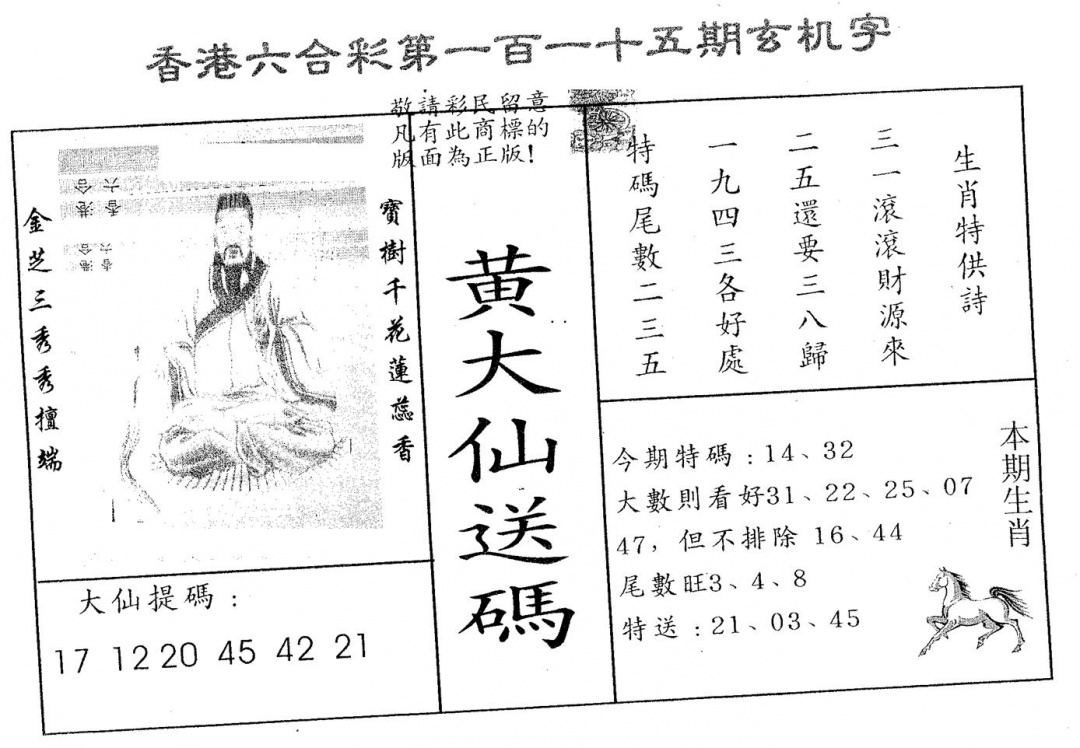 香港六合彩第一百一十五期玄机字
敬請彩民留意
凡有此商標的
版面為正版!
寶樹千花蓮蕊香
金芝三秀秀擅端
大仙提碼：
17 12 20 45 42 21
黄大仙送碼
生肖特供詩
三一滾滾財源來
二五還要三八歸
一九四三各好處
特碼尾數二三五
今期特碼：14、32
大數則看好31、22、25、07
47，但不排除 16、44
尾數旺3、4、8
特送：21、03、45
本期生肖